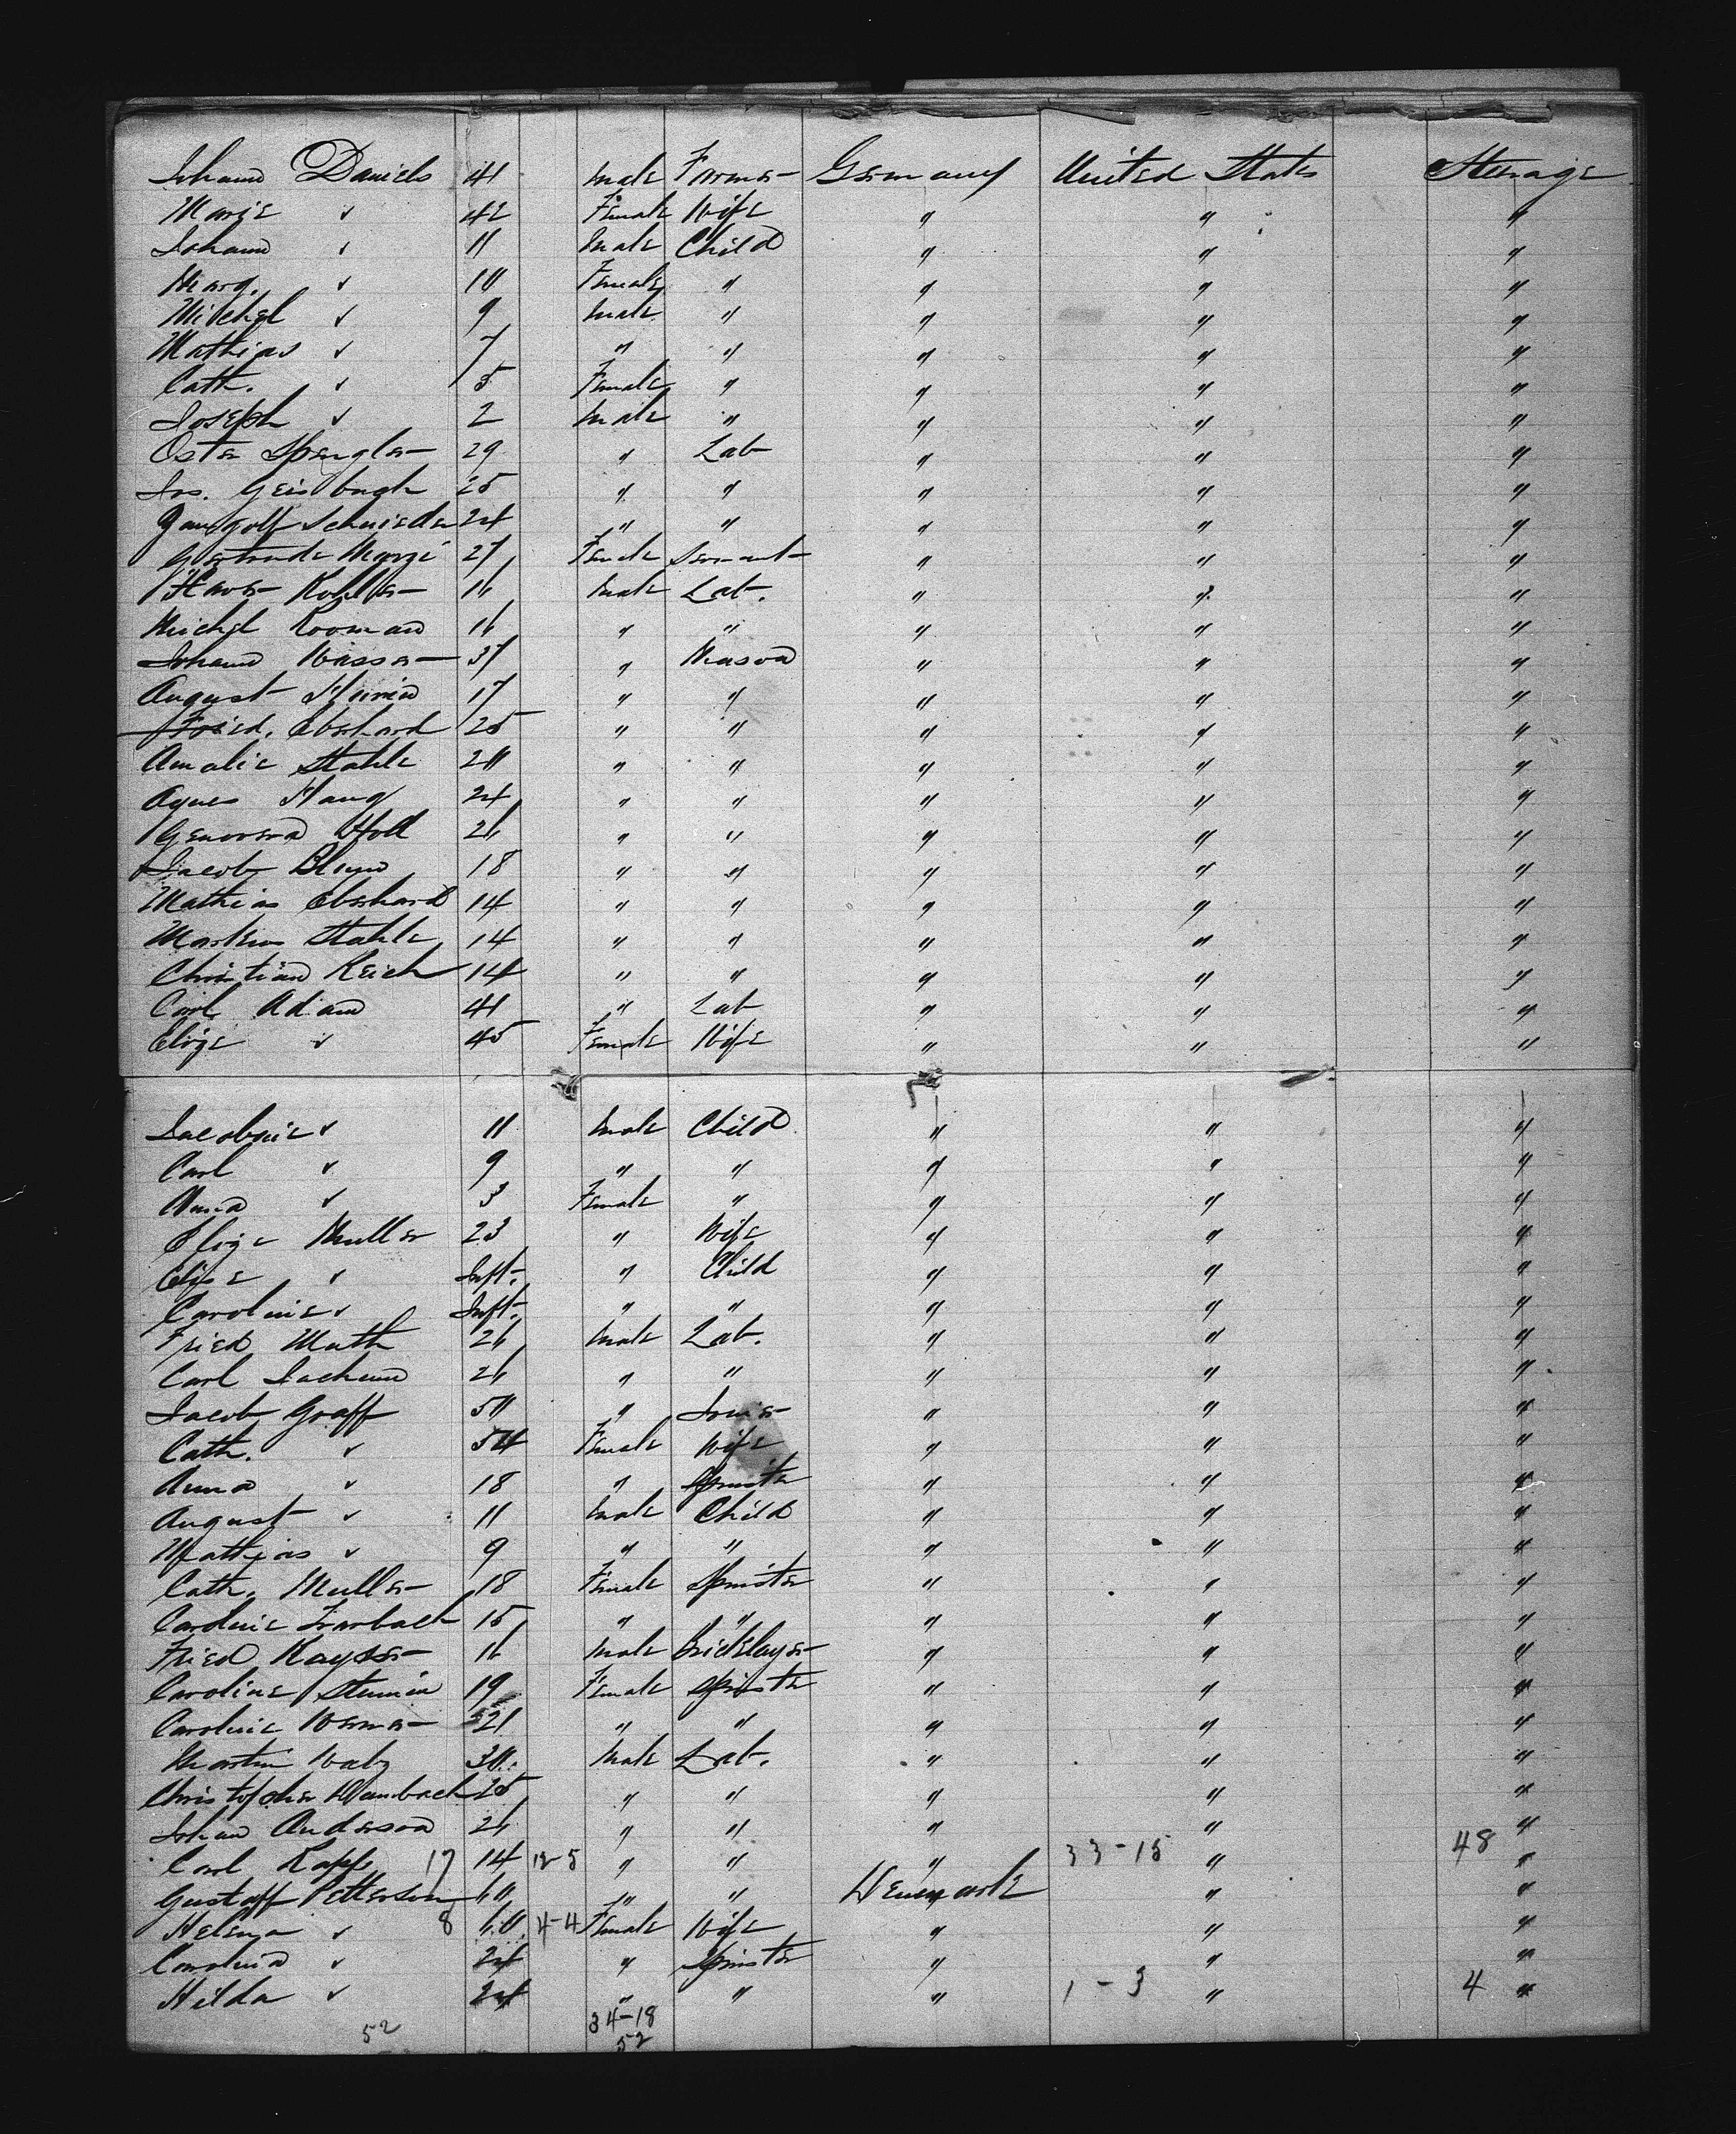 Johann Daniels 41 Male Farmer Germany United States Steerage
Marie " 42 Female Wife " " "
Johann " 11 Male Child " " "
Marg. " 10 Female " " " "
Michel " 9 Male " " " "
Mathias " 7 " " " " "
Cath. " 5 Female " " " "
Joseph " 2 Male " " " "
Spengler 29 " Lab " " "
Jos. Geisbugh 25 " " " " "
Gangolf Schnieder 24 " " " " "
Gertrude 27 Female Servant " " "
Kohler 16 Male Lab. " " "
Michel Rooman 16 " " " " "
Johann Wasser 37 " Mason " " "
August 17 " " " " "
Fried. Eberhard 25 " " " " "
Amalie Stahle 20 " " " " "
Agnes Haug 24 " " " " "
Genovera Holl 26 " " " " "
Jacob 18 " " " " "
Mathias Eberhard 14 " " " " "
Markus Stahle 14 " " " " "
Christian Reich 14 " " " " "
Carl Adam 41 " Lab " " "
Elize " 45 Female Wife " " "
Jacobnie " 11 Male Child " " "
Carl " 9 " " " " "
Anna " 3 Female " " " "
Elize Muller 23 " Wife " " "
Elise " Inft. " Child " " "
Caroline " Inft. " " " " "
Fried Muth 26 Male Lab. " " "
Carl 26 " " " " "
Jacob Graff 50 " " " "
Cath. " 54 Female Wife " " "
Anna " 18 " Spinster " " "
August " 11 Male Child " " "
Mathias " 9 " " " " "
Cath. Muller 18 Female Spinster " " "
Caroline Trarbach 15 " " " " "
Fried Kaysser 16 Male Bricklayer " " "
Caroline 19 Female Spinster " " "
Caroline Werner 21 " " " " "
Martin Waby 30 Male Lab. " " "
Christopher Dambach 25 " " " " "
Johan Anderson 26 " " " " "
Carl Kapp 17 14 12-5 " " " 33-15 " 48 "
Gustaff Petterson 60 " " Denmark " "
Helena " 8 60 4-4 Female Wife " " "
Carolina " 24 " Spinster " " "
Hilda " 24 " " " 1-3 " 4 "
52 34-18
52